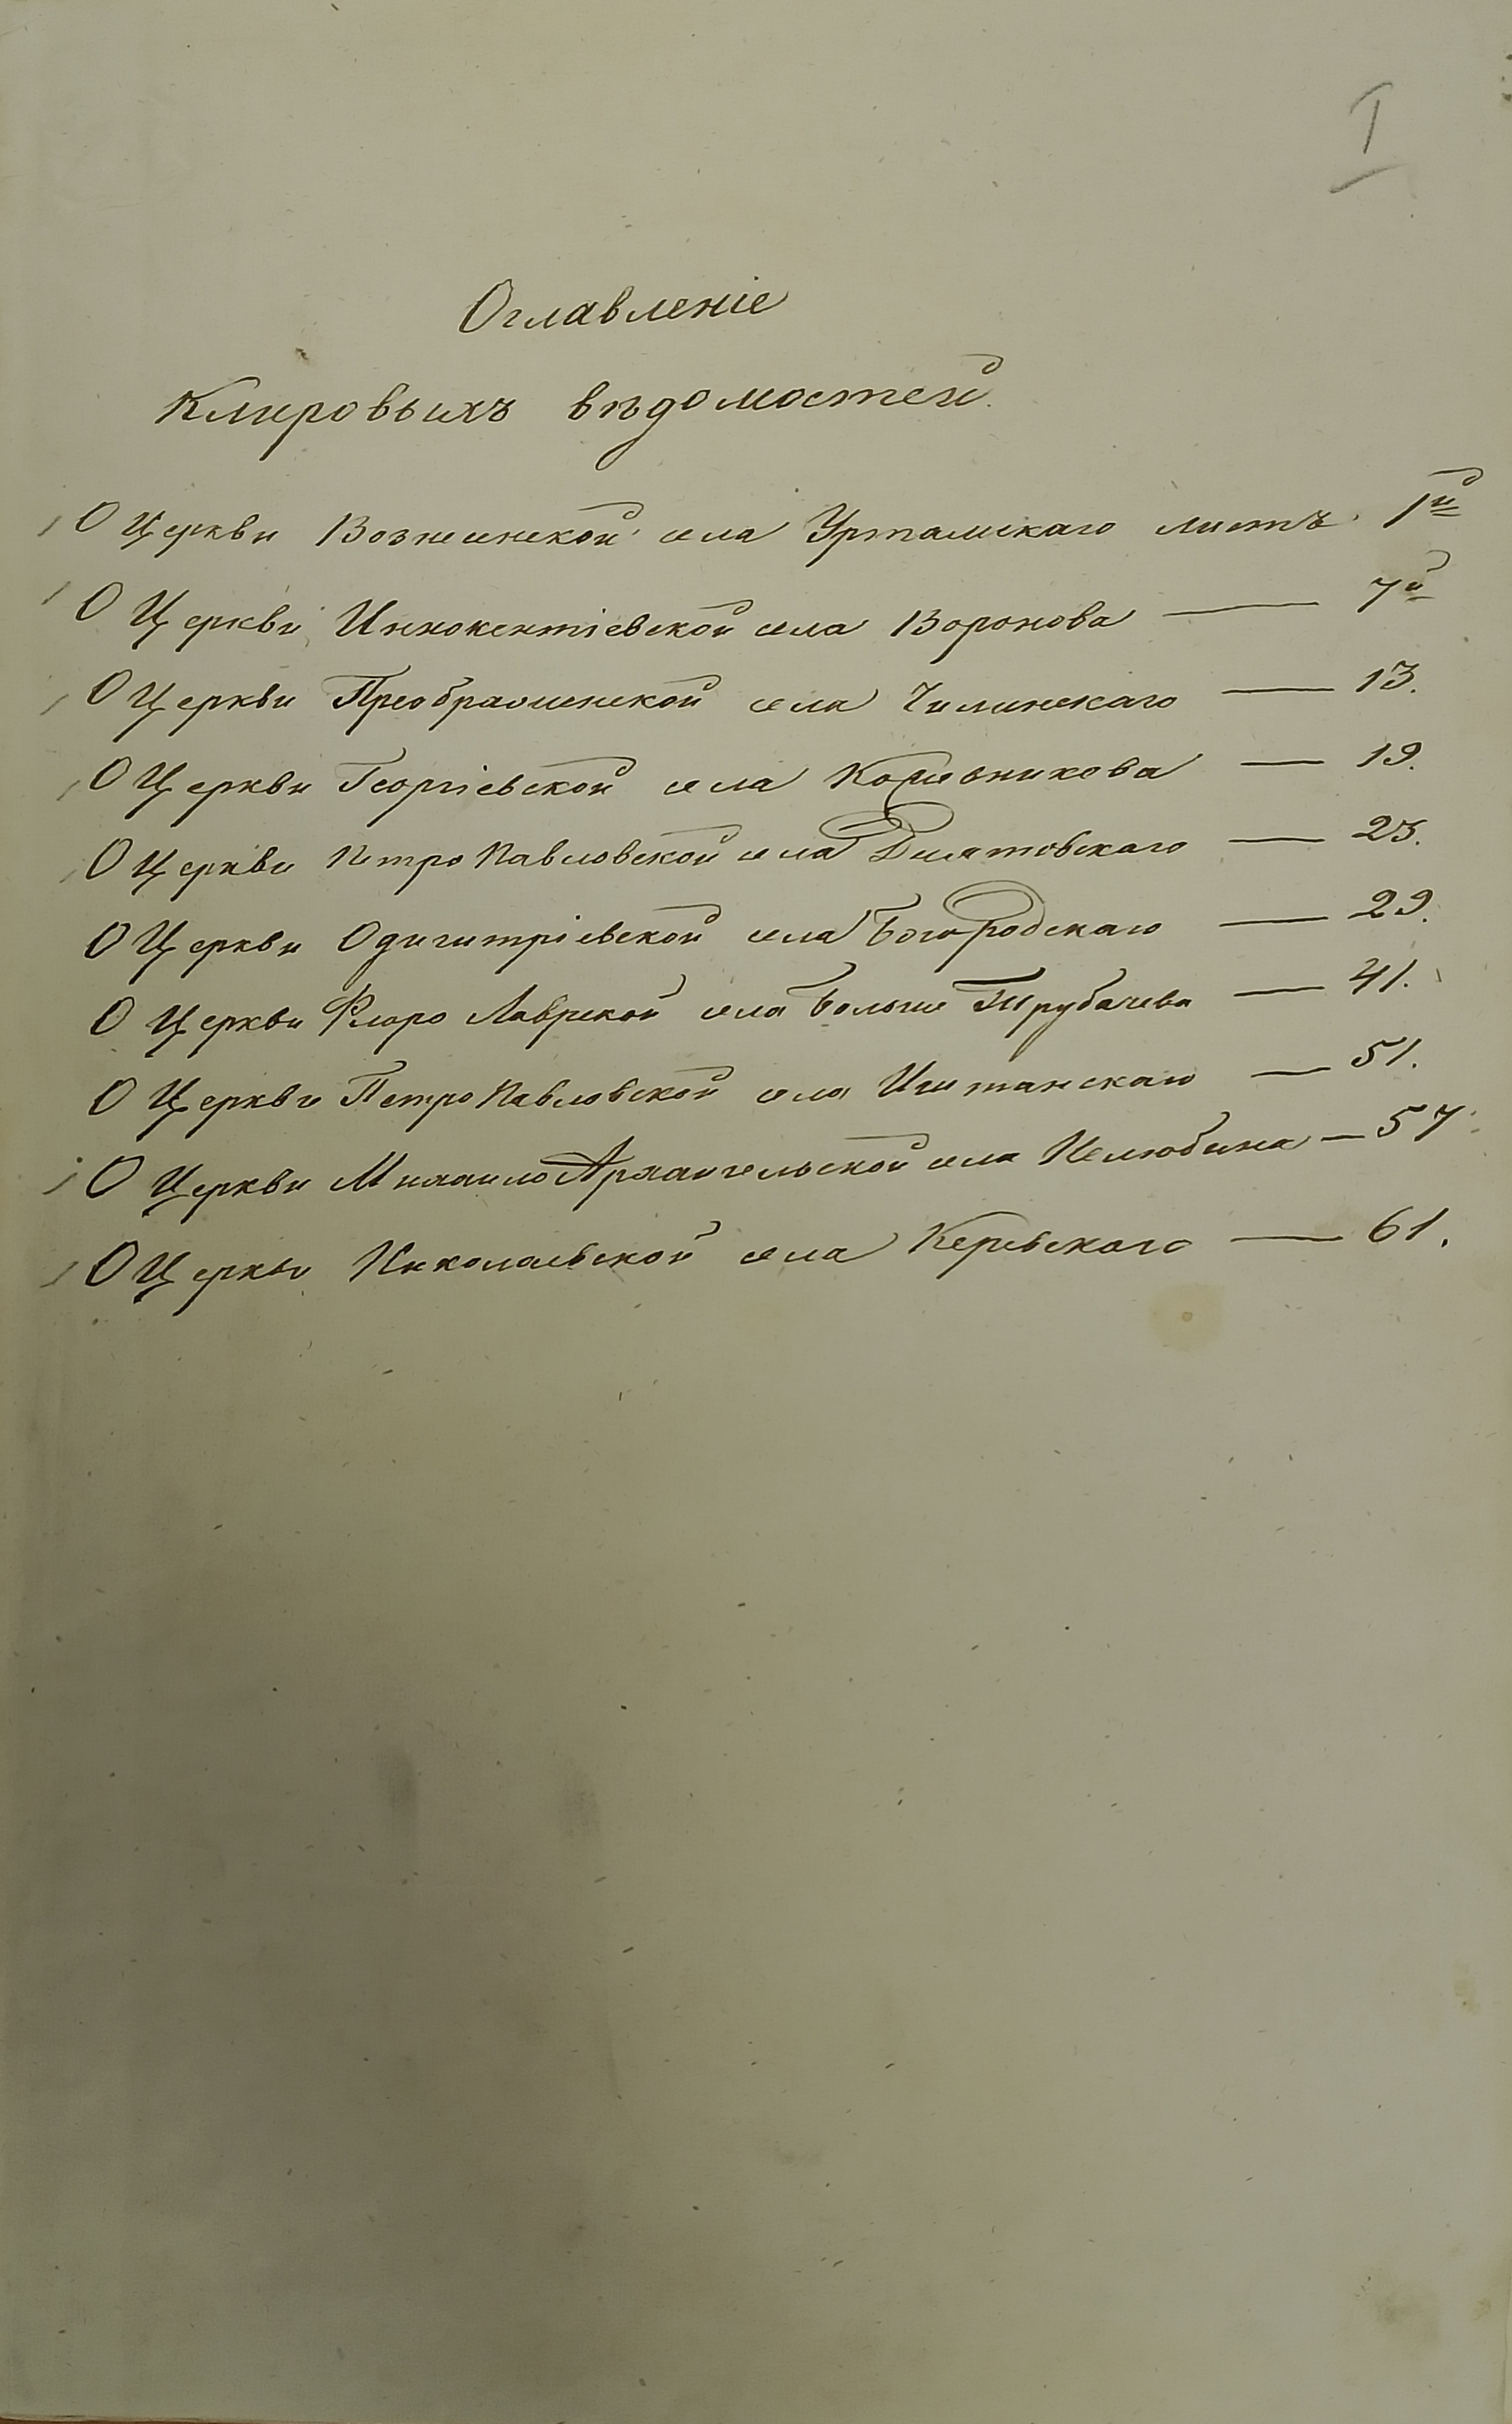 I
Оглавленіе
Клировыхъ вѣдомостей.
О Церкви Вознесенской села Уртамскаго листъ 1й
О Церкви Иннокентіевской села Воронова — 7й
О Церкви Преображенской села Чилинскаго — 13.
О Церкви Георгіевской села Кожевникова — 19.
О Церкви Петропавловской села — 23.
О Церкви Одигитріевской села Богородскаго — 29.
О Церкви Флоро Лаврской села Больше Трубачева — 41.
О Церкви Петропавловской села Иштанскаго — 51.
О Церкви Михаило Архангельской села Нелюбина — 57.
О Церкви Николаевской села Керевскаго — 61.